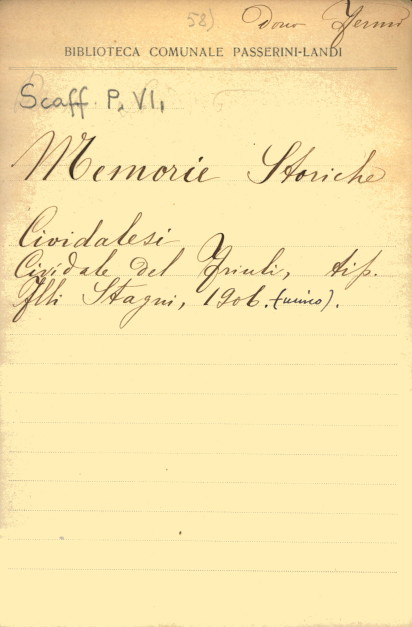 58) Dono Fermi
BIBLIOTECA COMUNALE PASSERINI-LANDI
Scaff. P. VI.
Memorie Storiche
Cividalesi
Cividale del Friuli, tip.
Flli Stagni, 1906. (unico).